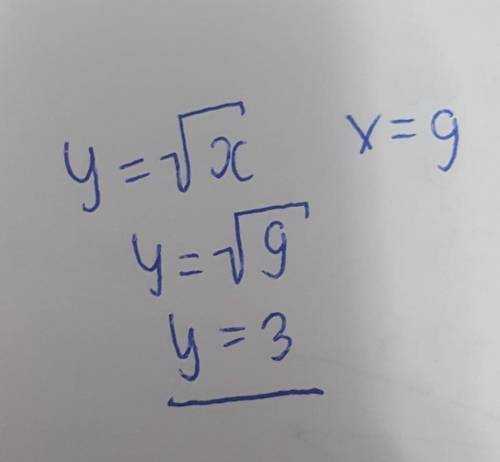 y = √x x = 9
y = √9
y = 3